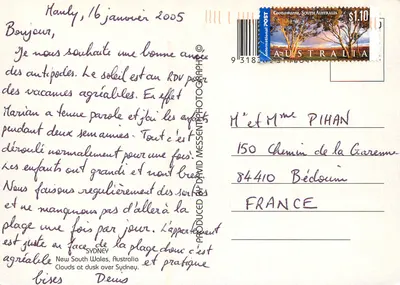 Manly, 16 janvier 2005
Bonjour,
Je nous souhaite une bonne année
des antipodes. Le soleil est au RDV pour
des vacances agréables. En effet
Marian a tenue parole et j'ai les enfants
pendant deux semaines. Tout c'est
déroulé normalement pour une fois.
Les enfants ont grandi et nout bret.
Nous faisons regulièrement des sorties
et ne manquons pas d'aller à la
plage une fois par jour. L'appartement
est juste en face de la plage donc c'est
agréable et pratique
bises Denis
SYDNEY
New South Wales, Australia
Clouds at dusk over Sydney.
PRODUCED BY © DAVID MESSENT PHOTOGRAPHY
POST
$1.10
AUSTRALIA
Mr et Mme PIHAN
150 Chemin de la Garenne
84410 Bédouin
FRANCE